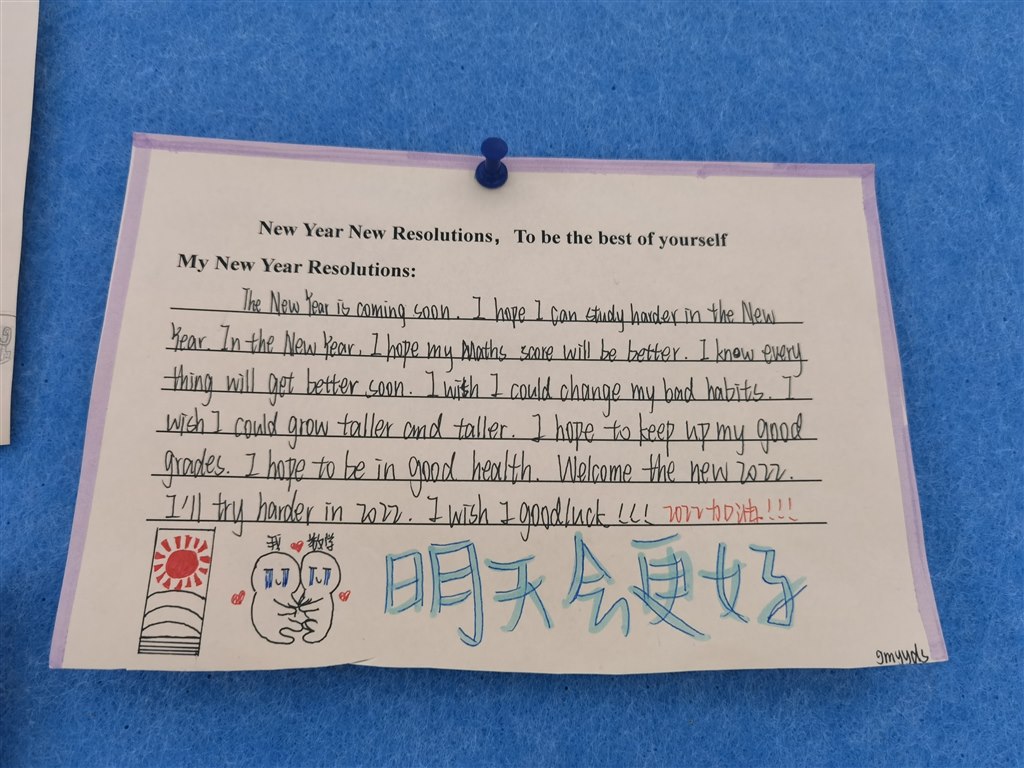 New Year New Resolutions，To be the best of yourself
My New Year Resolutions:
The New Year is coming soon. I hope I can study harder in the New
Year. In the New Year, I hope my Maths score will be better. I know every
thing will get better soon. I wish I could change my bad habits. I
wish I could grow taller and taller. I hope to keep up my good
grades. I hope to be in good health. Welcome the new 2022.
I'll try harder in 2022. I wish I goodluck!!! 2022加油!!!
我 数学
明天会更好